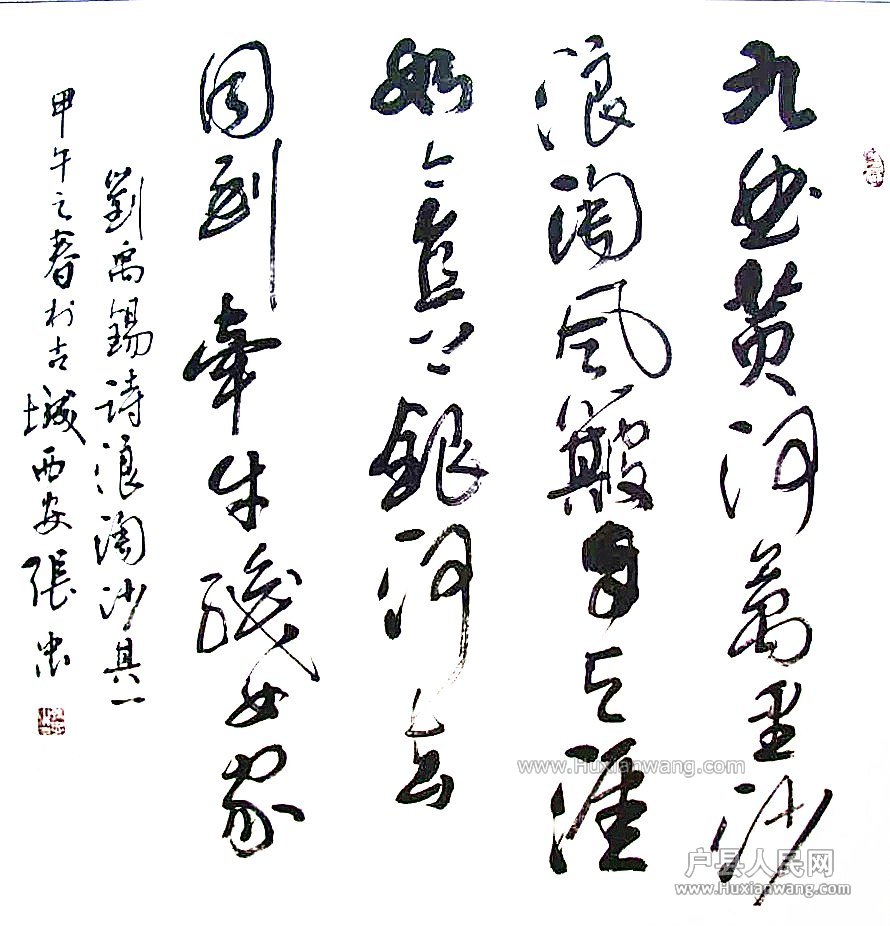 九曲黄河萬里沙
浪淘風簸自天涯
如今直上銀河去
同到牽牛織女家
劉禹錫詩浪淘沙其一
甲午之春於古城西安張忠
www.Huxianwang.com
户县人民网
www.Huxianwang.com